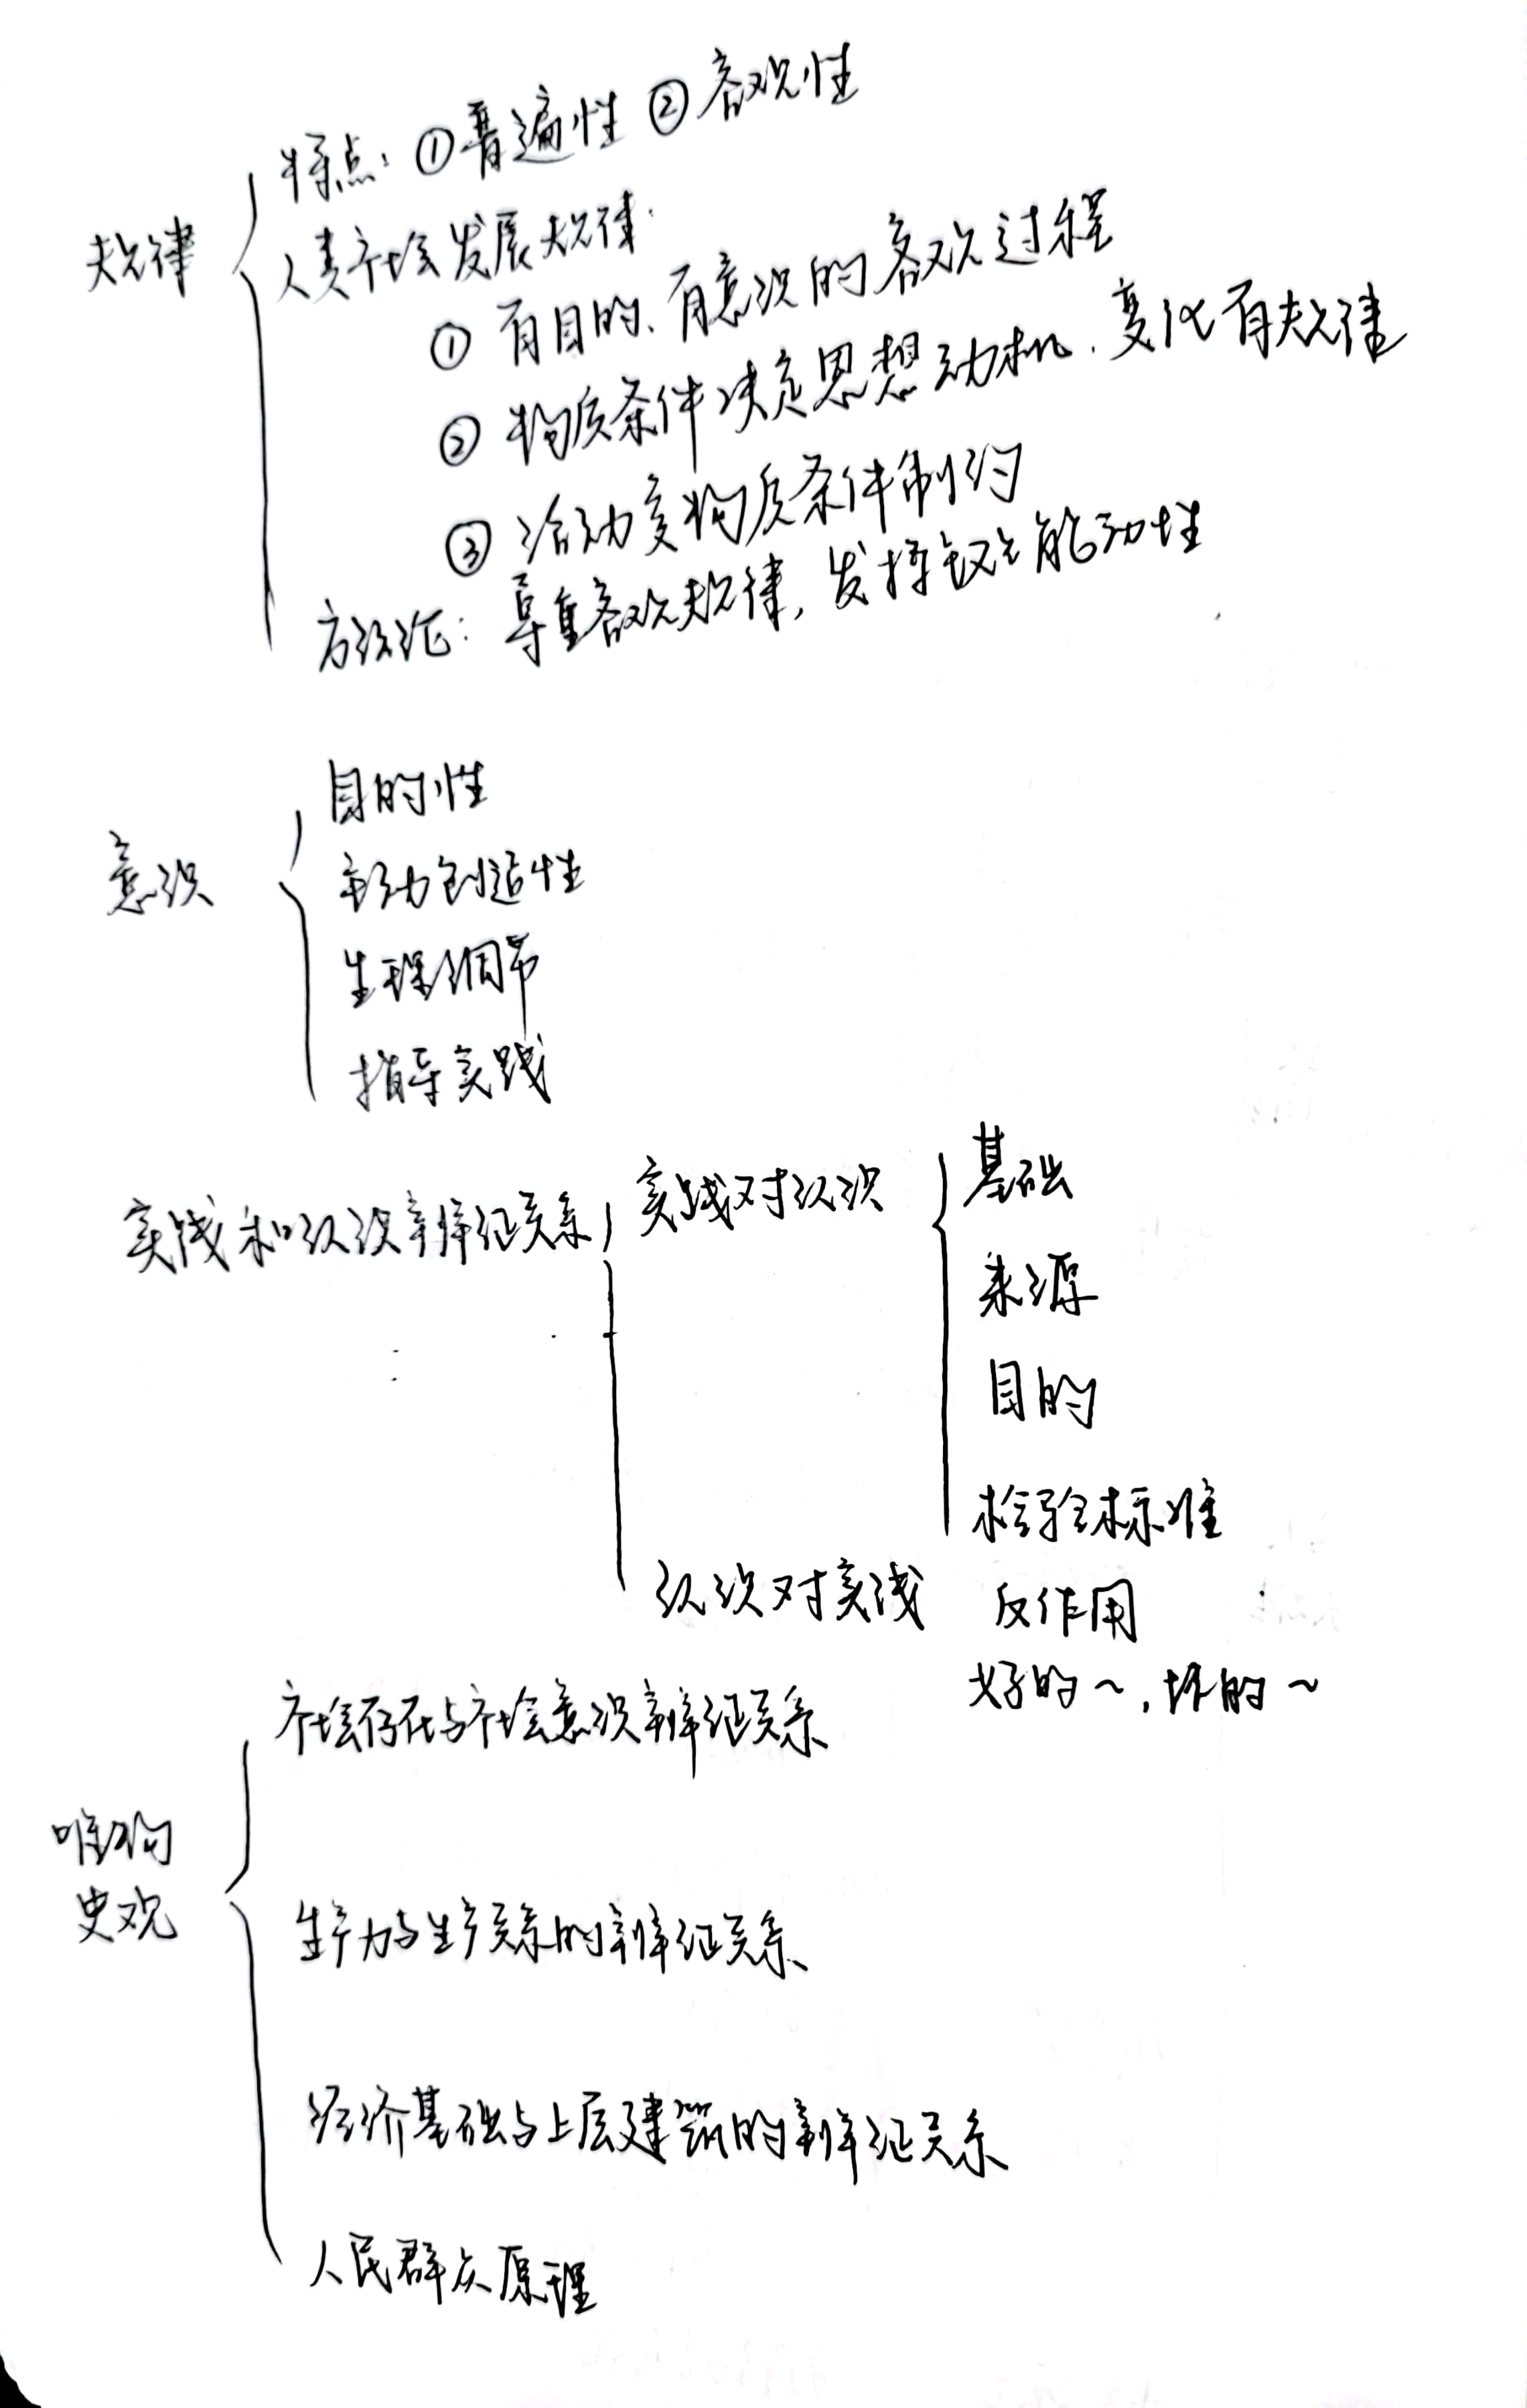 特点：①普遍性 ②客观性
规律
人类社会发展规律：
① 有目的、有意识的客观过程
② 物质条件决定思想动机，变化有规律
③ 活动受物质条件制约
方法论：尊重客观规律，发挥主观能动性
目的性
意识
主动创造性
生理调节
指导实践
实践和认识辩证关系
实践对认识
基础
来源
目的
检验标准
认识对实践 反作用
好的～，坏的～
社会存在与社会意识辩证关系
唯物
史观
生产力与生产关系的辩证关系
经济基础与上层建筑的辩证关系
人民群众原理